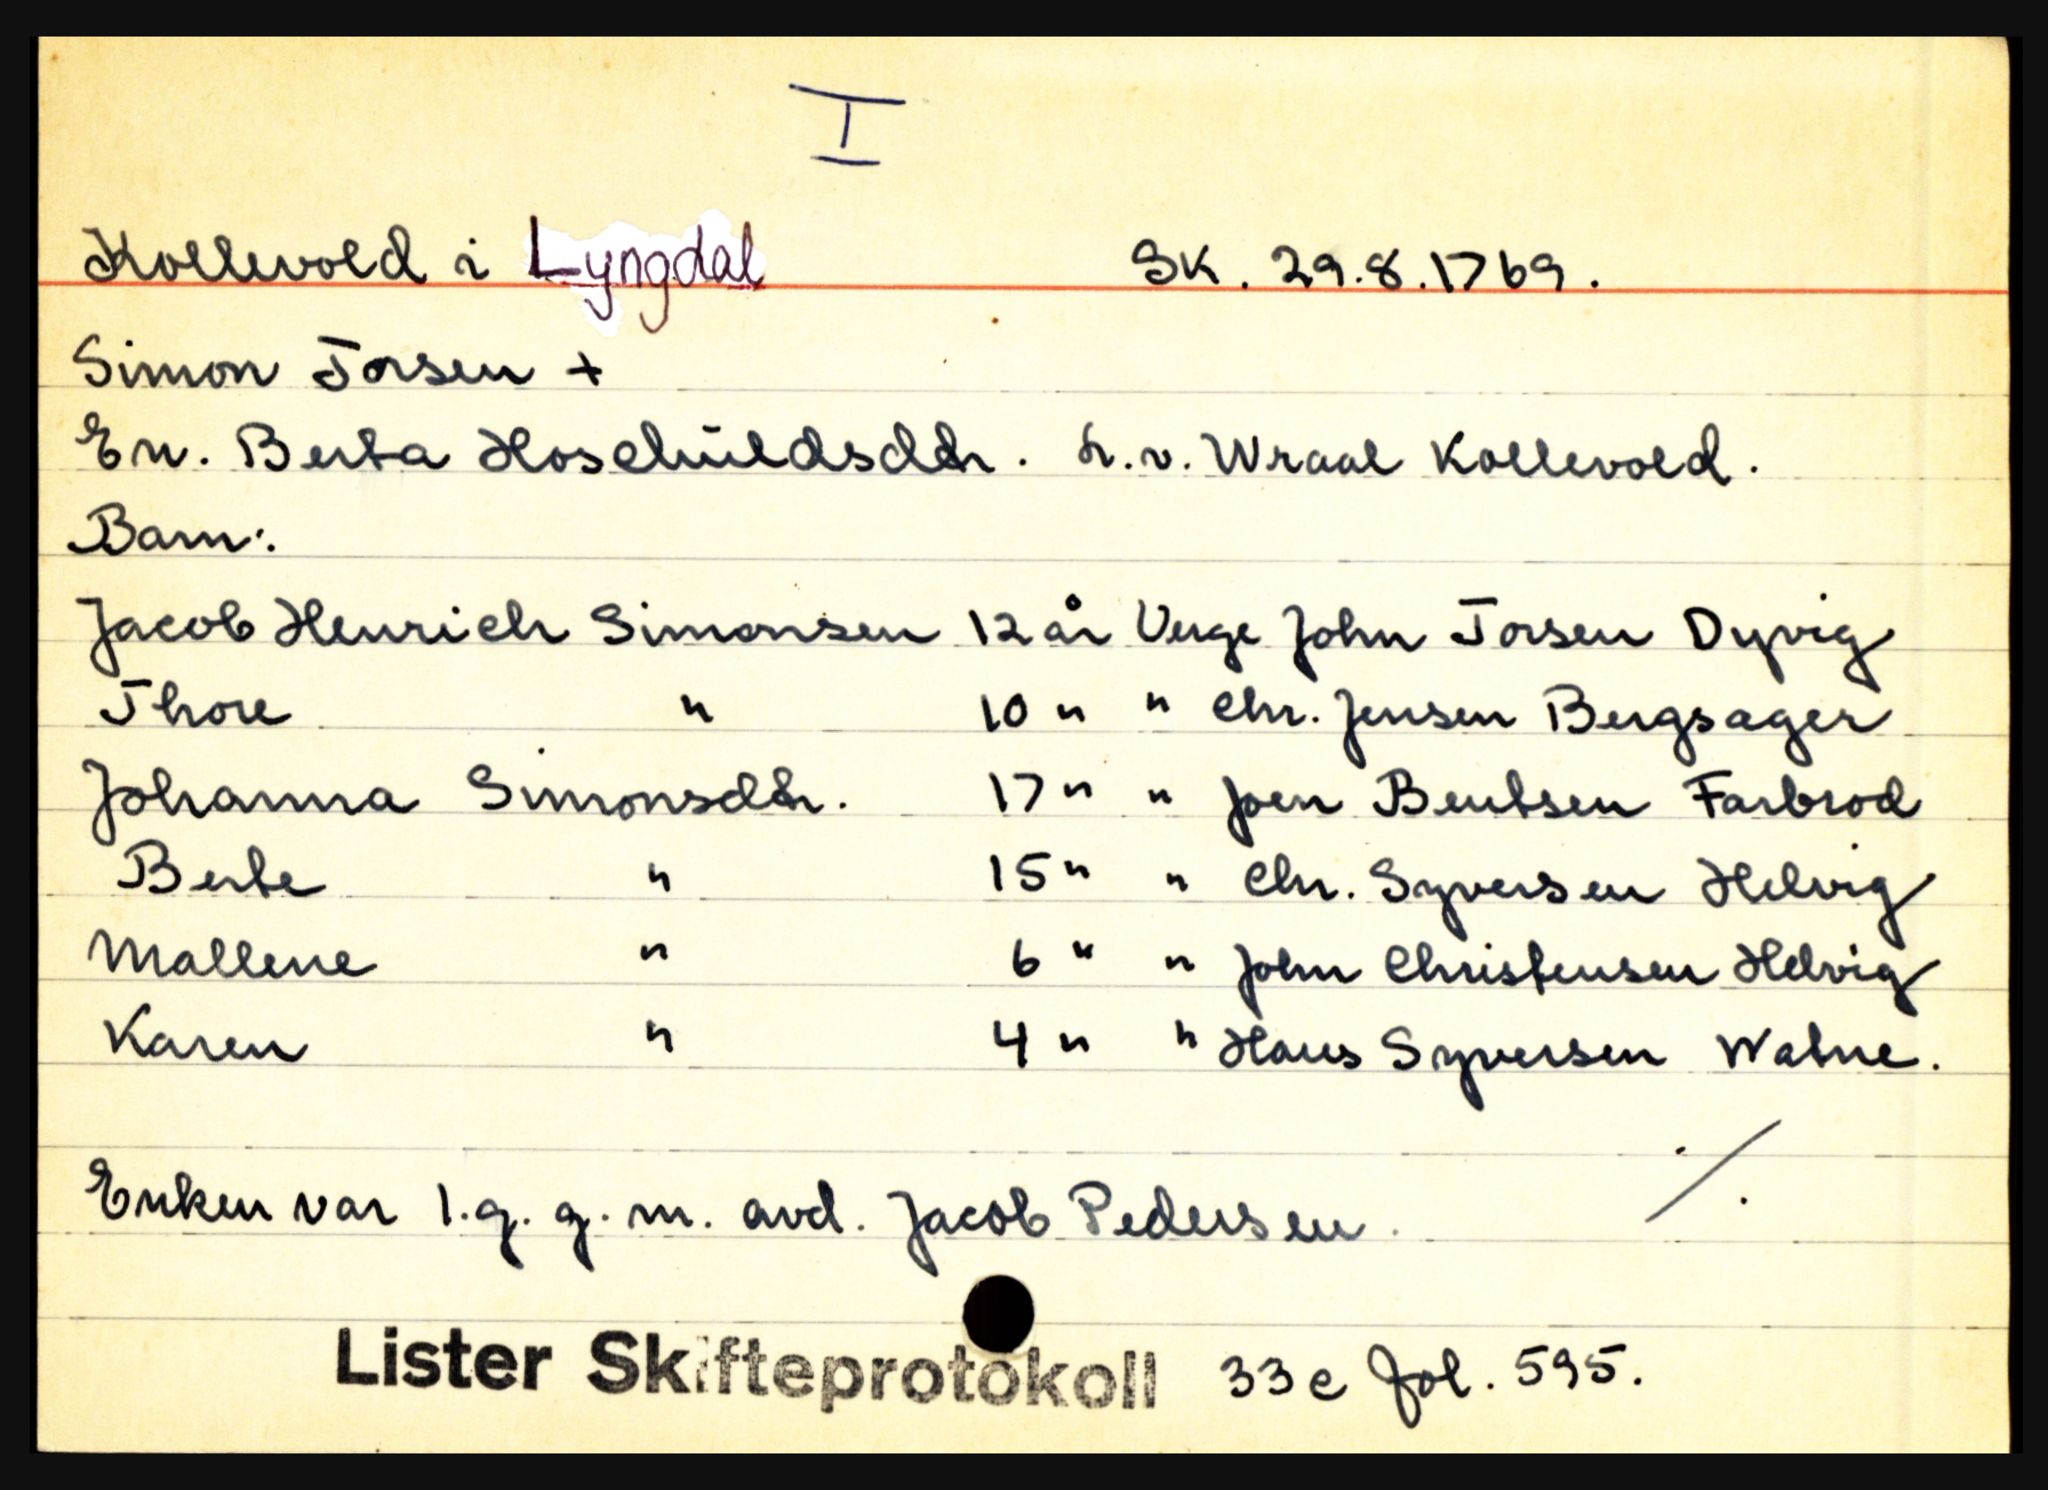 I
Kollevold i Lyngdal SK. 29.8.1769.
Simon Torsen +
En. Berta Hoschuldsdtr. L.v. Wraal Kollevold.
Barn:
Jacob Henrich Simonsen 12 år Verge John Torsen Dyvig
Thore " 10 " " Chr. Jensen Bergsager
Johanna Simonsdtr. 17 " " Joen Bentsen Farbrod
Berte " 15 " " Chr. Syversen Helvig
Mallene " 6 " " John Christensen Helvig
Karen " 4 " " Hans Syversen Watne.
Enken var 1.g. g. m. avd. Jacob Pedersen.
Lister Skifteprotokoll 33 c fol. 595.